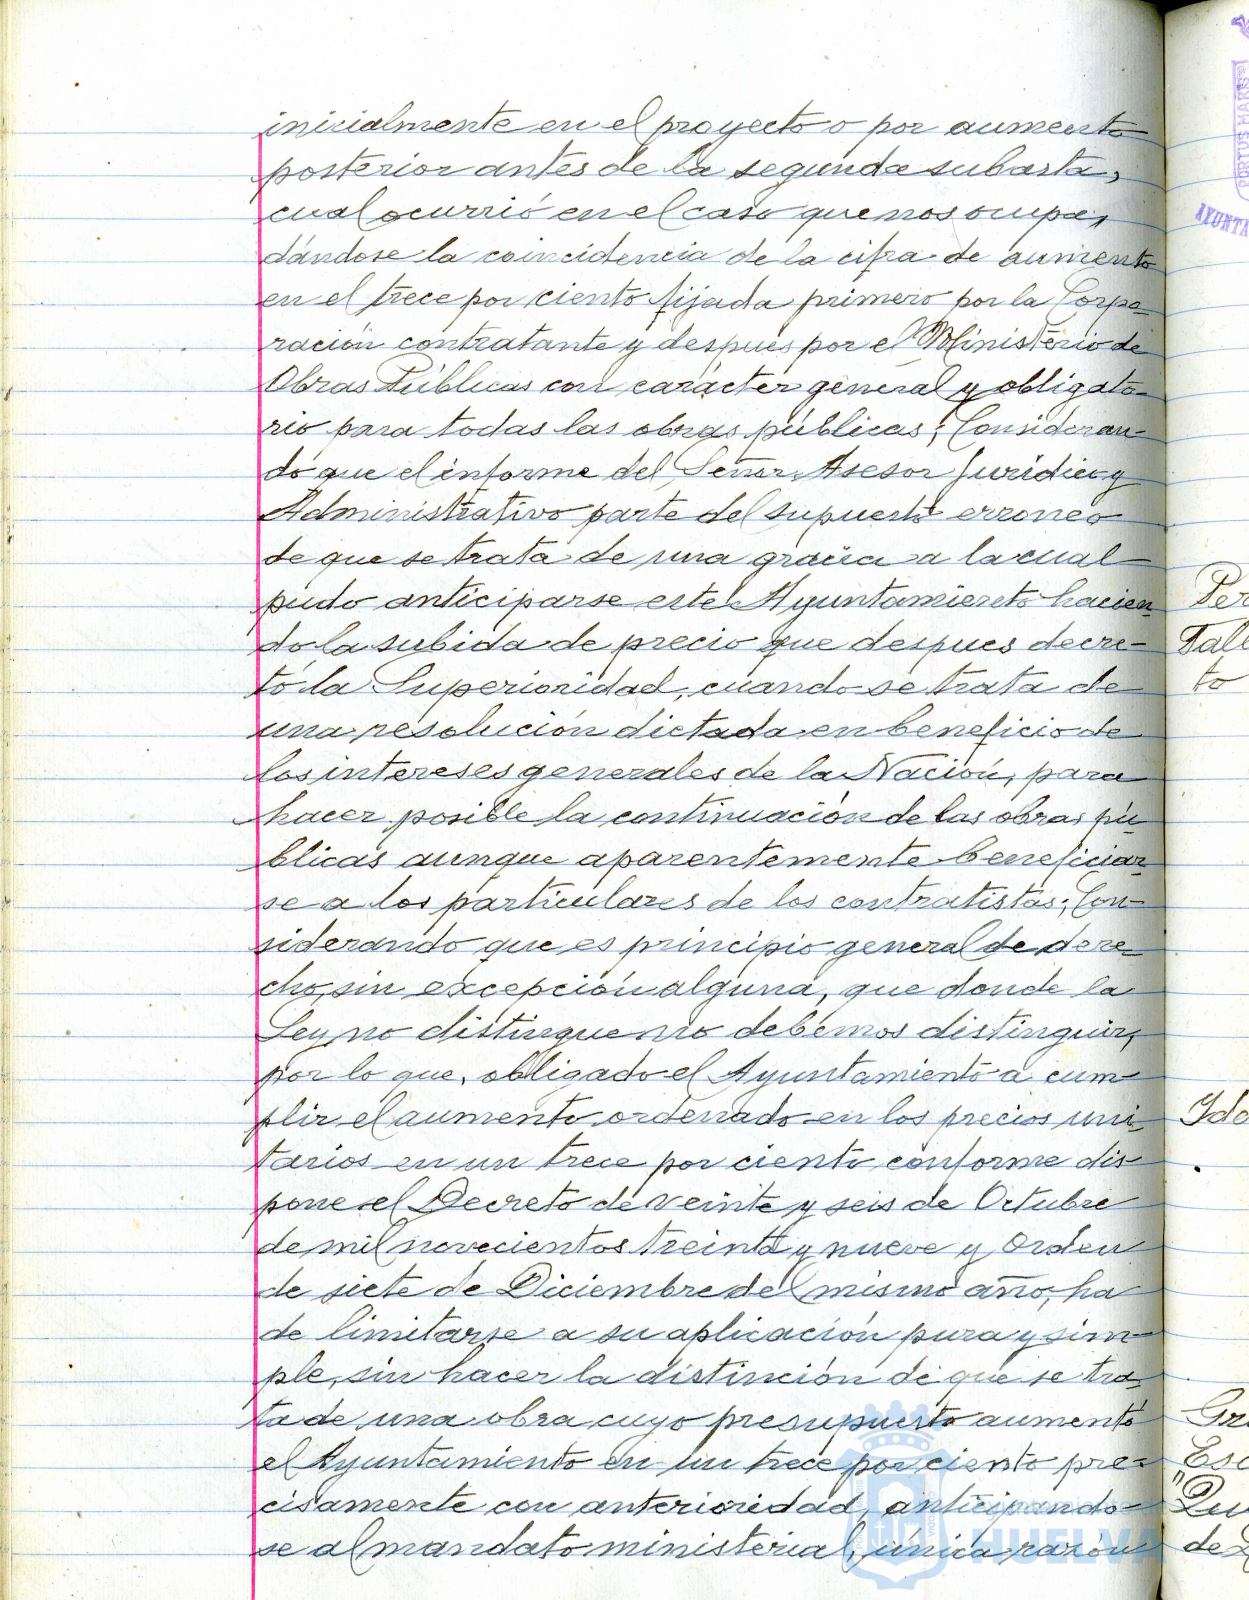 inicialmente en el proyecto o por aumento
posterior antes de la segunda subasta,
cual ocurrió en el caso que nos ocupa,
dándose la coincidencia de la cifra de aumento
en el trece por ciento fijada primero por la Corpo-
ración contratante y después por el Ministerio de
Obras Públicas con carácter general y obligato-
rio para todas las obras públicas; Consideran-
do que el informe del Señor Asesor Jurídico y
Administrativo parte del supuesto erroneo
de que se trata de una gracia a la cual
pudo anticiparse este Ayuntamiento hacien-
do la subida de precio que despues decre-
tó la Superioridad, cuando se trata de
una resolución dictada en beneficio de
los intereses generales de la Nación, para
hacer posible la continuación de las obras pú-
blicas aunque aparentemente beneficiar-
se a los particulares de los contratistas; Con-
siderando que es principio general de dere-
cho, sin excepción alguna, que donde la
Ley no distingue no debemos distinguir,
por lo que, obligado el Ayuntamiento a cum-
plir el aumento ordenado en los precios uni-
tarios en un trece por ciento conforme dis-
pone el Decreto de veinte y seis de Octubre
de mil novecientos treinta y nueve y Orden
de siete de Diciembre del mismo año, ha
de limitarse a su aplicación pura y sim-
ple, sin hacer la distinción de que se tra-
ta de una obra cuyo presupuesto aumentó
el Ayuntamiento en un trece por ciento pre-
cisamente con anterioridad, anticipando-
se al mandato ministerial, única razón
HUELVA
PORTUS MARIS
AYUNTA
Per
Fall
to
Ido
Gra
Esc
"Qu
de